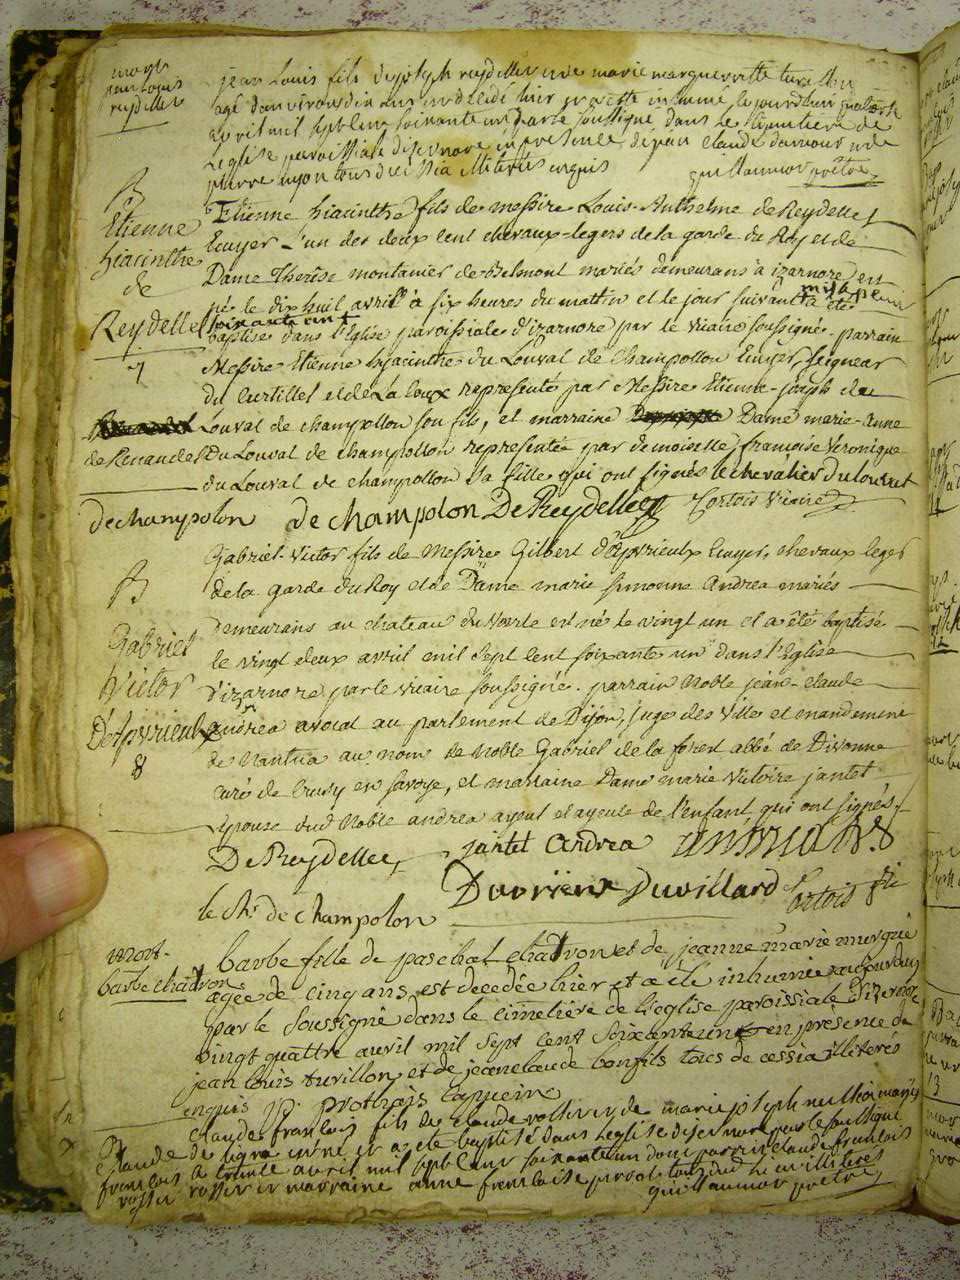 mort
jean Louis
reydellet
jean Louis fils de joseph reydellet et de marie marguerritte
agé d'environs dix ans est decedé hier et a esté inhumé le jourd'huy
avril mil sept cent soixante un par le soussigné dans le cimetiere de
L'eglise paroissiale d'isernore en presence de jean claude damour et de
pierre tous d'icy illiterés enquis
guillaumot prêtre
B
Etienne
hiacinthe
de
Reydellet
7
Etienne hiacinthe fils de Messire Louis-Anthelme de Reydellet
Ecuyer L'un des deux cent chevaux-legers de la garde du Roy et de
Dame Therese montanier de Belmont mariés demeurans à izarnore est
né le dix huit avril à six heures du mattin et le jour suivant a été
mil sept cent
soixante un
baptisé dans l'Eglise paroissiale d'izarnore par le vicaire soussigné. parrain
Messire Etienne hyacinthe du Louvat de Champollon Ecuyer, seigneur
du Curtillet et de La Coux representé par Messire Etienne-joseph du
Louvat de champollon son fils, et marraine Dame marie-anne
de Renaudet Du Louvat de champollon representée par demoiselle françoise veronique
du Louvat de champollon sa fille qui ont signés le chevalier du louvat
dechampolon de champolon De Reydellet Cortois vicaire
B
Gabriel
Victor
D'Esprieulx
8
Gabriel-Victor fils de Messire Gilbert d'Esprieulx Ecuyer, chevaux leger
de la garde du Roy et de Dame marie simonne Andrea mariés
demeurans au chateau du Voerle est né le vingt un et a été baptisé
le vingt deux avril mil sept cent soixante un dans l'Eglise
d'izarnore par le vicaire soussigné. parrain Noble jean-claude
andrea avocat au parlement de Dijon, juge des ville et mandement
de Nantua au nom de Noble Gabriel de la forest abbé de Divonne
curé de Crusy en savoye, et marraine Dame marie victoire jantet
Epouse dud Noble andrea ayeul et ayeule de l'enfant qui ont signés.
De Reydellet jantet andrea andrea
le chr. de champolon Duvillard Cortois vic
mort.
barbe chatron
barbe fille de paschal chatron et de jeanne marie
agée de cinq ans, est decedée hier et a été inhumée aujourduy
par le soussigné dans le cimetiere de l'eglise paroissiale d'izernore
vingt quattre avril mil sept cent soixante un en présence de
jean louis turillon et de jean claude bonfils tous de cessia illiteres
enquis protrais capucin
Claude
françois
claude françois fils de claude et de marie joseph
de né hier et a eté baptisé dans l'eglise d'isernore par le soussigné
a trente avril mil sept cent soixante un dont parrin claude françois
et marraine anne françoise illiterés
guillaumot pretre